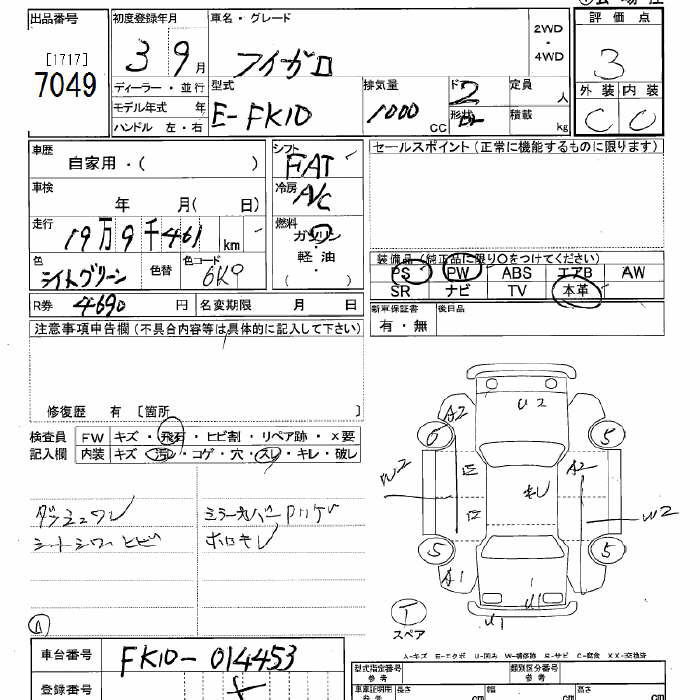 出品番号
[1717]
7049
初度登録年月
3 9月
車名・グレード
フィガロ
2WD
・
4WD
評価点
3
外装 内装
C C
ディーラー・並行
モデル年式 年
ハンドル 左・右
型式
E-FK10
排気量
1000 CC
ドア 2
形状
定員 人
積載 kg
車歴
自家用・( )
車検
年 月( 日)
走行
19万9千461 km
色
ライトグリーン
色替
色コード
6K9
シフト
FAT
冷房
A/C
燃料
ガソリン
・
軽油
( )
セールスポイント(正常に機能するものに限ります)
装備品(純正品に限り○をつけてください)
PS PW ABS エアB AW
SR ナビ TV 本革
新車保証書
有・無
後日品
R券 4690 円
名変期限 月 日
注意事項申告欄(不具合内容等は具体的に記入して下さい)
修復歴 有 [箇所 ]
検査員
記入欄
FW キズ・飛石・ヒビ割・リペア跡・×要
内装 キズ・汚レ・コゲ・穴・スレ・キレ・破レ
ダッシュワレ
シートシワ・ヒビ
ミラーカバー
ホロキレ
A
U2
A2
6
5
W2
A2
キレ
W2
5
5
A1
U1
U1
T
スペア
A-キズ E-エクボ U-凹み W-補修跡 S-サビ C-腐食 XX-交換済
車台番号
FK10-014453
登録番号
型式指定番号
参考
類別区分番号
車庫証明用
参考
長さ cm
幅 cm
高さ cm